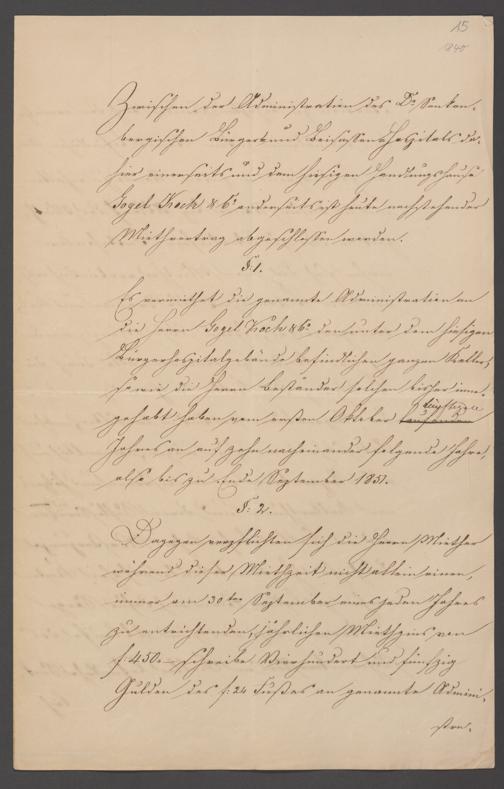 15
1840
Zwischen der Administration des Dr. Senken-
bergischen Bürger- und Beisassen Hospitals da-
hier einerseits und dem hiesigen Handlungshause
Gogel Koch & Co. anderseits ist heute nachstehender
Miethvertrag abgeschlossen worden.
§. 1.
Es vermiethet die genannte Administration an
die Herrn Gogel Koch & Co. den unter dem hiesigen
Bürgerhospitalgebäude befindlichen ganzen Keller,
sowie die Herrn Beständer solchen bisher inne-
gehabt haben vom ersten Oktober laufenden künftigen
Jahres an auf zehn nacheinander folgende Jahre,
also bis zu Ende September 1851.
§. 2.
Dagegen verpflichten sich die Herrn Miether
während dieser Miethzeit nicht allein einen,
immer am 30ten September eines jeden Jahres
zu entrichtenden, jährlichen Miethzins von
f 450. schreibe Vierhundert und fünfzig
Gulden des f. 24 Fußes an genannte Admini-
stra-